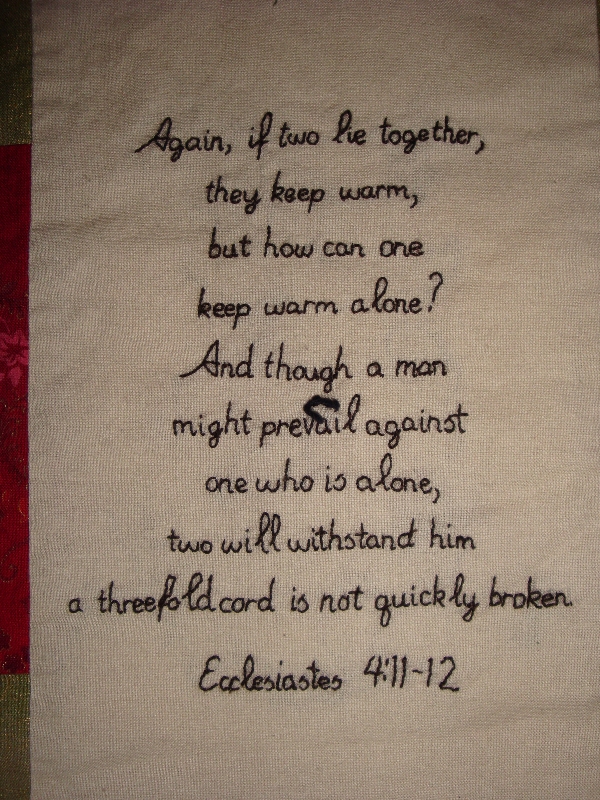 Again, if two lie together,
they keep warm,
but how can one
keep warm alone?
And though a man
might prevail against
one who is alone,
two will withstand him
a threefold cord is not quickly broken.
Ecclesiastes 4:11-12